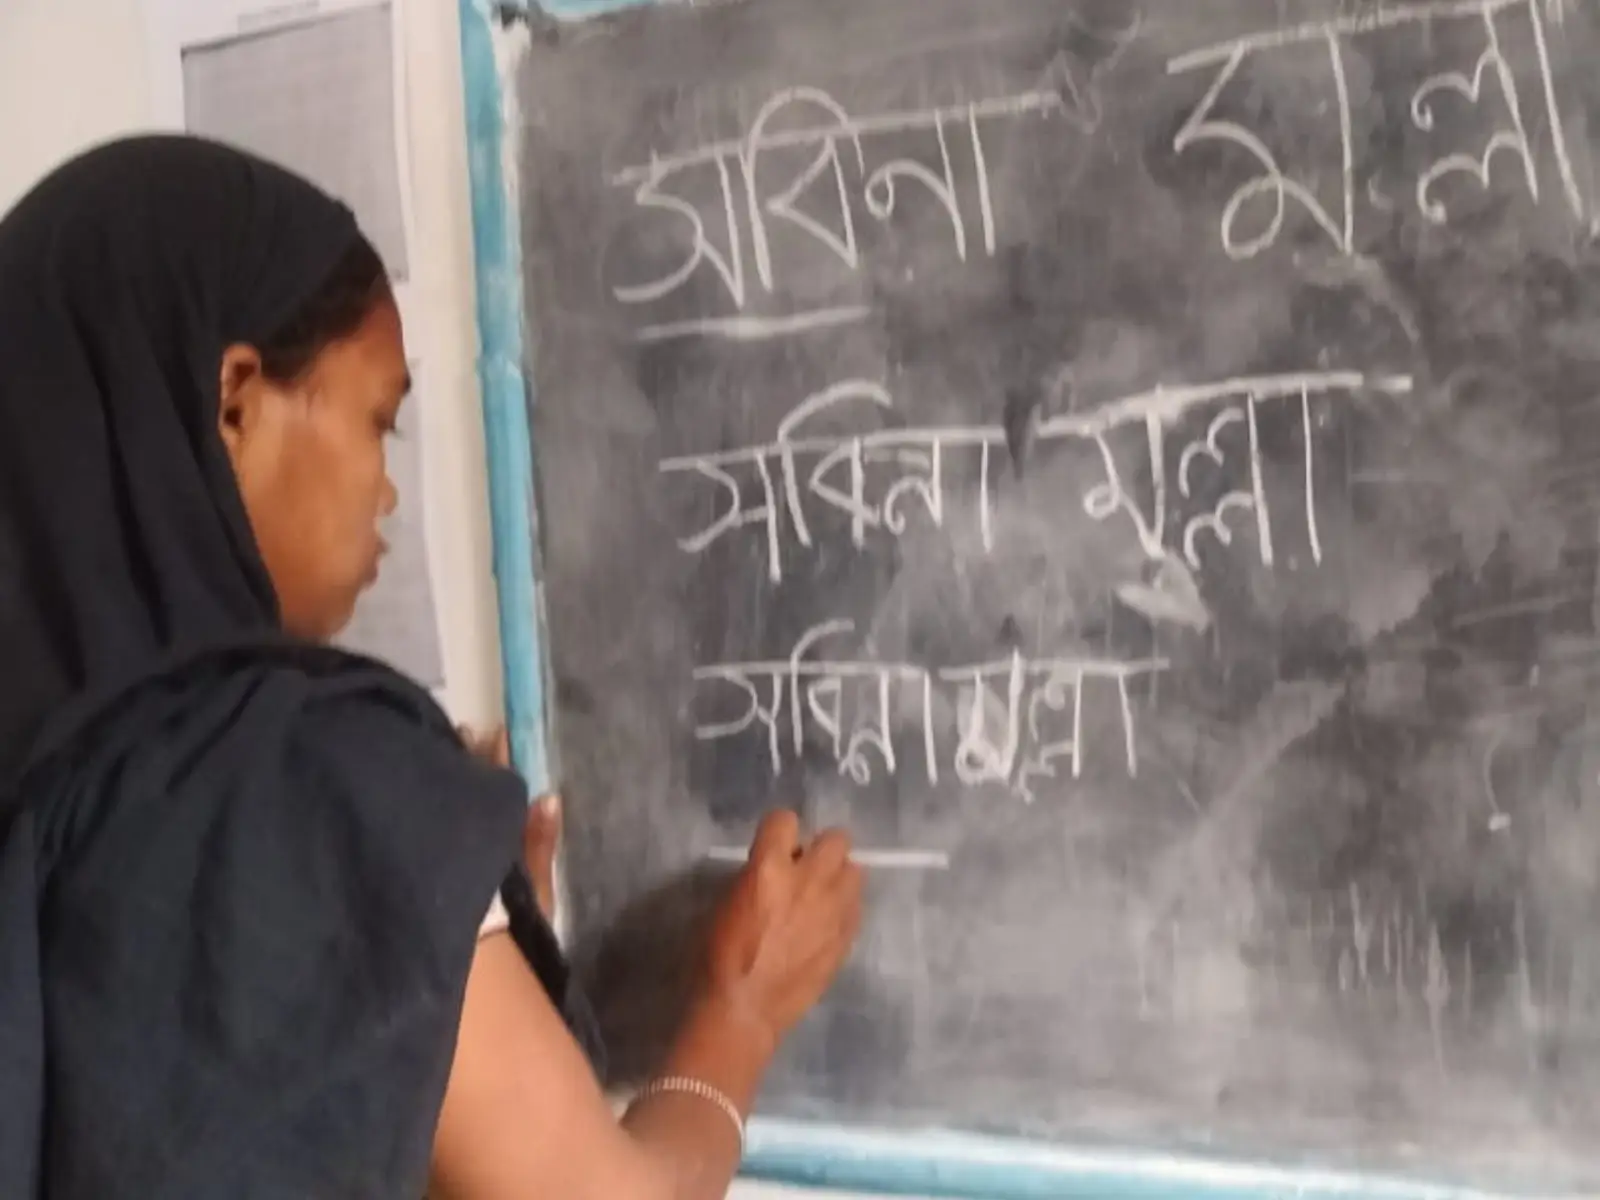 সবিনা মুল্লা
সবিনা মুল্লা
সবিনা মুল্লা